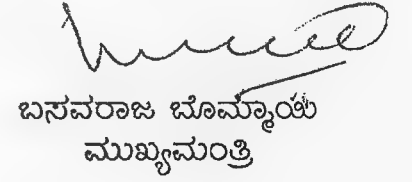 ಬಸವರಾಜ ಬೊಮ್ಮಾಯಿ
ಮುಖ್ಯಮಂತ್ರಿ